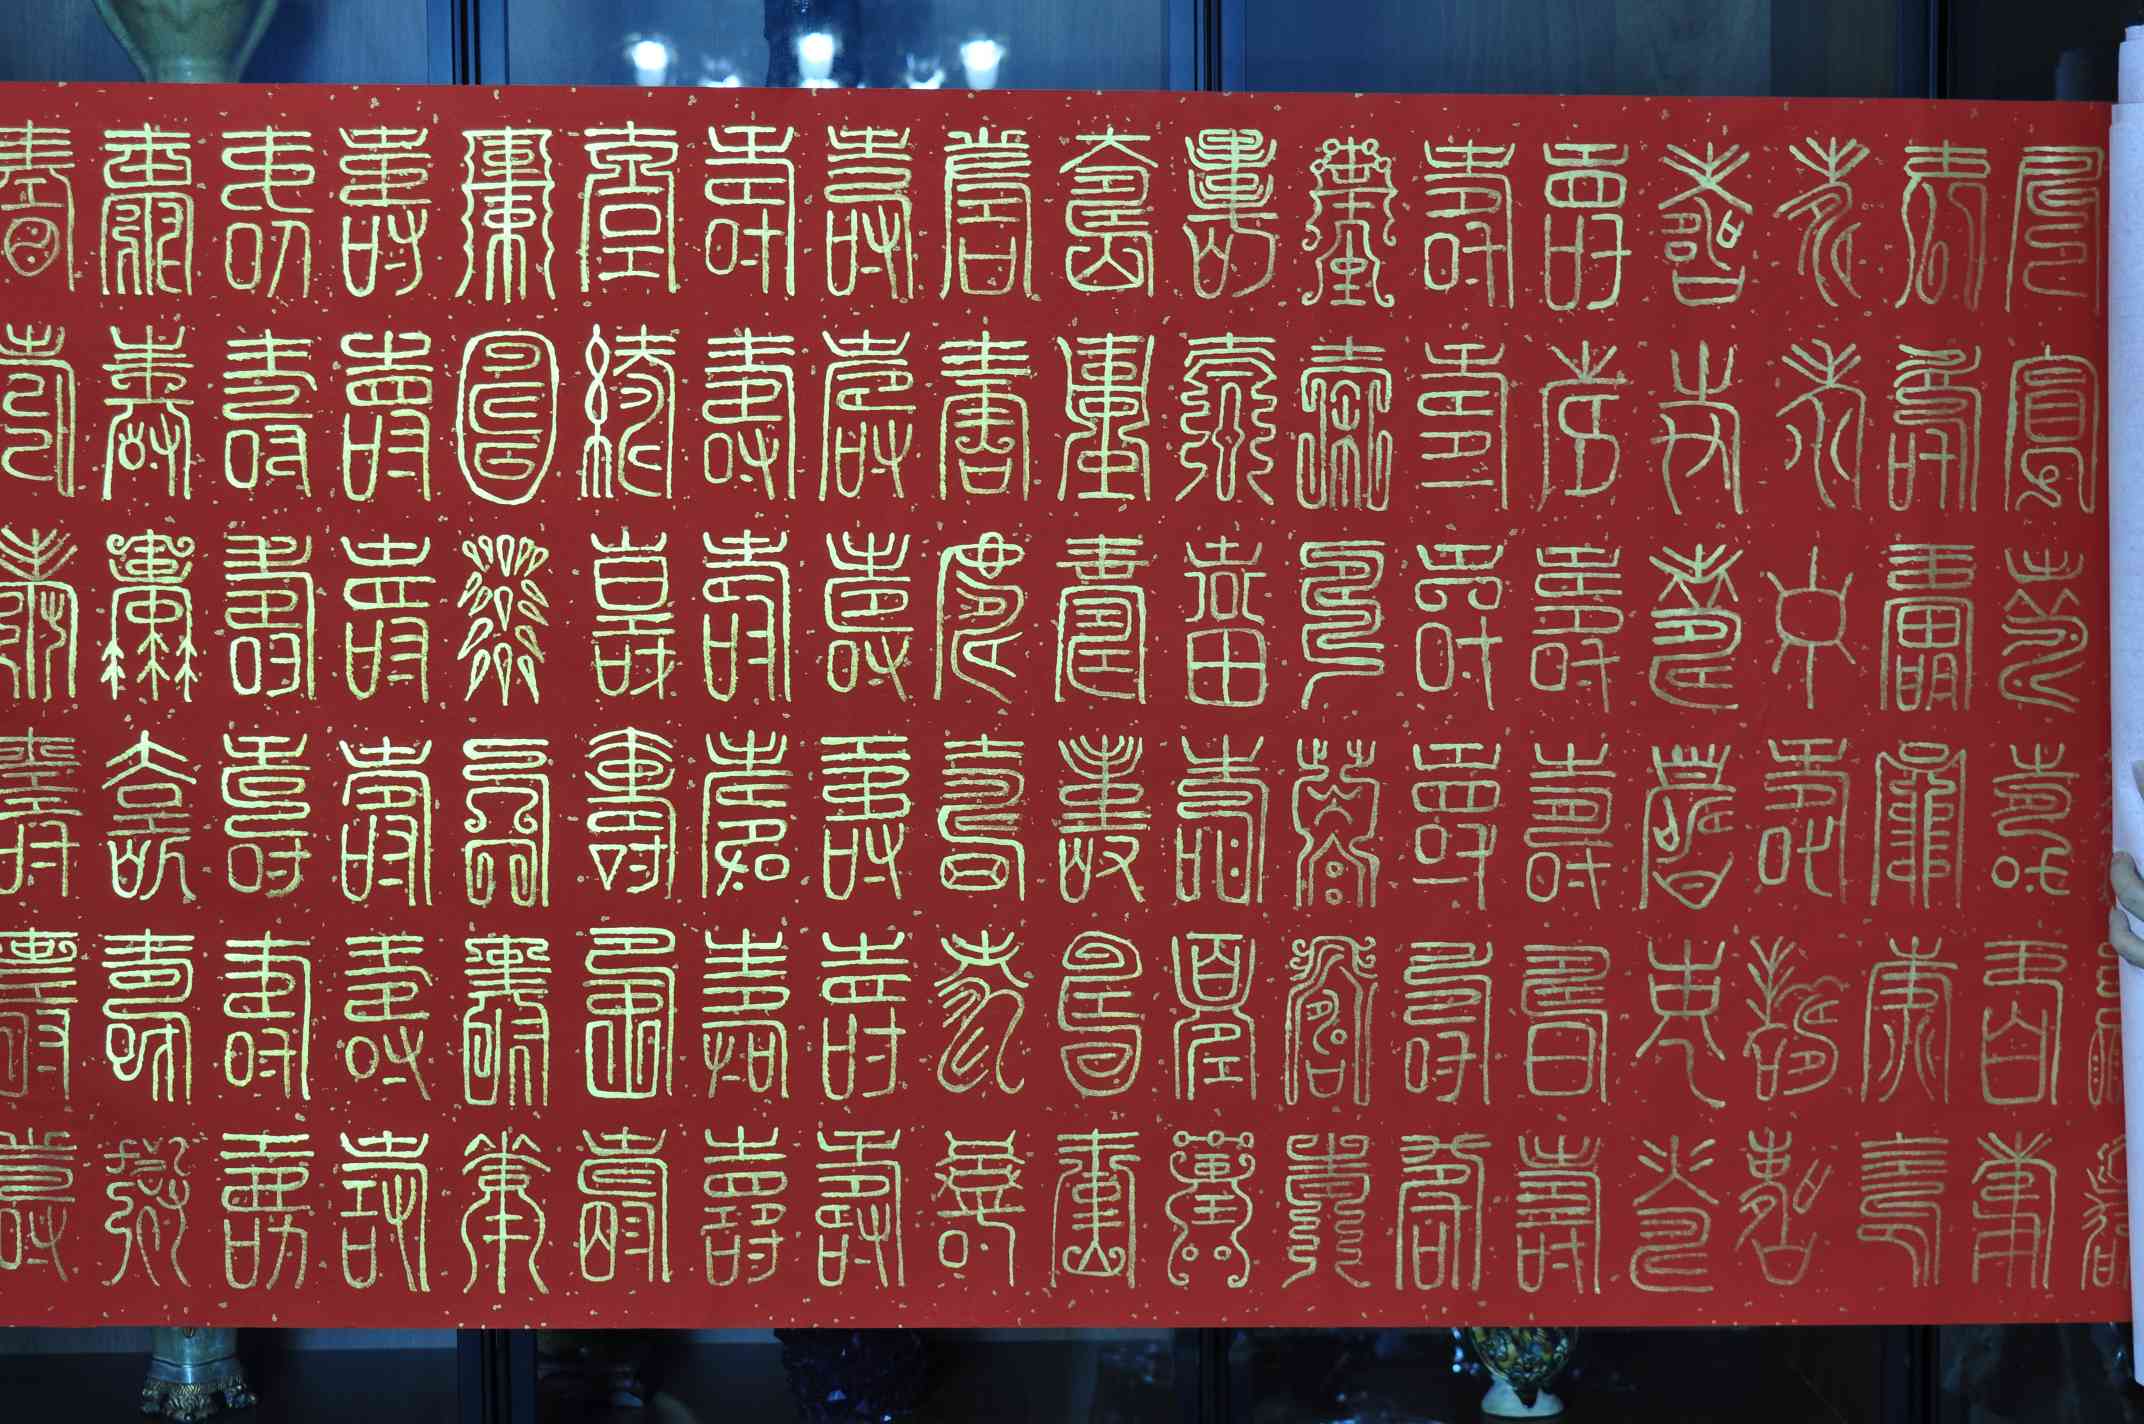 壽壽壽壽壽壽
壽壽壽壽壽壽
壽壽壽壽壽壽
壽壽壽壽壽壽
壽壽壽壽壽壽
壽壽壽壽壽壽
壽壽壽壽壽壽
壽壽壽壽壽壽
壽壽壽壽壽壽
壽壽壽壽壽壽
壽壽壽壽壽壽
壽壽壽壽壽壽
壽壽壽壽壽壽
壽壽壽壽壽壽
壽壽壽壽壽壽
壽壽壽壽壽壽
壽壽壽壽壽壽
壽壽壽壽壽壽